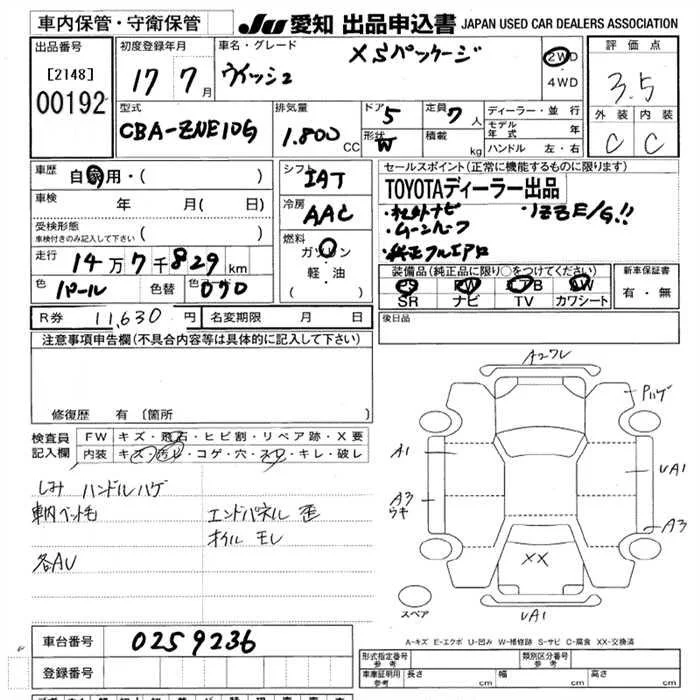 車内保管・守衛保管 JU 愛知 出品申込書 JAPAN USED CAR DEALERS ASSOCIATION
出品番号 初度登録年月 車名・グレード 評価点
[2148] 17 年 7 月 ウィッシュ XSパッケージ 2WD ・ 4WD 3.5
00192 外装 内装
型式 排気量 ドア 5 定員 7 人 ディーラー・並行 C C
CBA-ZNE10G 1.800 CC 形状 W 積載 kg モデル年式 年
ハンドル 左・右
車歴 自家用・( ) シフト IAT セールスポイント(正常に機能するものに限ります)
車検 年 月( 日) 冷房 AAC TOYOTAディーラー出品
受検形態 車検付きのみ記入して下さい ( ) 燃料 ・社外ナビ ・1ZZ E/G!!
・ムーンルーフ
走行 14万7千829km ガソリン 軽・油 ( ) ・純正フルエアロ
色 パール 色替 色コード 070 装備品(純正品に限り○をつけてください) 新車保証書
PS PW エアB AW 有・無
SR ナビ TV カワシート
R券 11,630 円 名変期限 月 日 後日品
注意事項申告欄(不具合内容等は具体的に記入して下さい)
修復歴 有 〔箇所
検査員記入欄 FW キズ・飛石・ヒビ割・リペア跡・X要
内装 キズ・汚レ・コゲ・穴・スレ・キレ・破レ
しみ ハンドルハゲ
車内ペット毛 エンドパネル 歪
オイル モレ
各AU
A2ワレ
Pハゲ
A1
UA1
A3
ウキ
A3
XX
スペア
UA1
A-キズ E-エクボ U-凹み W-補修跡 S-サビ C-腐食 XX-交換済
車台番号 0259236
登録番号
形式指定番号 参考 類別区分番号 参考
車庫証明用 参考 長さ cm 幅 cm 高さ cm